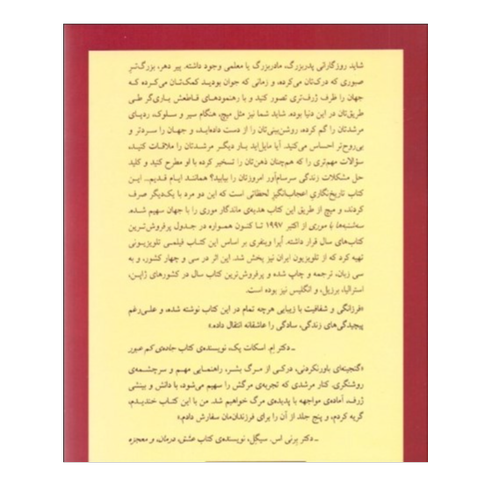 شاید روزگارانی پدربزرگ، مادربزرگ یا معلمی وجود داشته. پیر دهر، بزرگ‌تر
صبوری که درک‌تان می‌کرده، و زمانی که جوان بودید کمک‌تان می‌کرده که
جهان را ظرف ژرف‌تری تصور کنید و با رهنمودهای قاطعش یاری‌گر طی
طریق‌تان در این دنیا بوده. شاید شما نیز مثل میچ، هنگام سیر و سلوک، ردپای
مرشدتان را گم کرده، روشن‌بینی‌تان را از دست داده‌اید، و جهان را سردتر و
بی‌روح‌تر احساس می‌کنید. آیا مایل‌اید بار دیگر مرشدتان را ملاقات کنید،
سؤالات مهم‌تری را که هم‌چنان ذهن‌تان را تسخیر کرده با او مطرح کنید و کلید
حل مشکلات زندگی سرسام‌آور امروزتان را بیابید؟ همانند ایام قدیم... این
کتاب تاریخ‌نگاری اعجاب‌انگیز لحظاتی است که این دو مرد با یک‌دیگر صرف
کردند، و میچ از طریق این کتاب هدیه‌ی ماندگار موری را با جهان سهیم شده.
سه‌شنبه‌ها با موری از اکتبر ۱۹۹۷ تا کنون همواره در جدول پرفروش‌ترین
کتاب‌های سال قرار داشته. اُپرا وینفری بر اساس این کتاب فیلمی تلویزیونی
تهیه کرد که از تلویزیون ایران نیز پخش شد. این اثر در سی و چهار کشور، و به
سی زبان، ترجمه و چاپ شده و پرفروش‌ترین کتاب سال در کشورهای ژاپن،
استرالیا، برزیل، و انگلیس نیز بوده است.
«فرزانگی و شفافیت با زیبایی هرچه تمام در این کتاب نوشته شده، و علی‌رغم
پیچیدگی‌های زندگی، سادگی را عاشقانه انتقال داده.»
ـ دکتر اِم. اسکات پک، نویسنده‌ی کتاب جاده‌ی کم عبور
«گنجینه‌ای باورنکردنی، درکی از مرگ بشر، راهنمایی مهم و سرچشمه‌ی
روشنگری. کنار مرشدی که تجربه‌ی مرگش را سهیم می‌شود، با دانش و بینشی
ژرف، آماده‌ی مواجهه با پدیده‌ی مرگ خواهیم شد. من با این کتاب خندیدم،
گریه کردم، و پنج جلد از آن را برای فرزندان‌مان سفارش دادم.»
ـ دکتر برنی اس. سیگل، نویسنده‌ی کتاب عشق، درمان، و معجزه